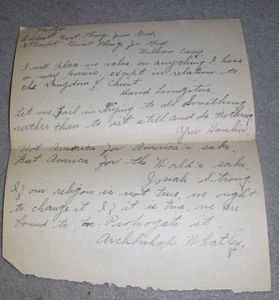 Motto
Expect Great Things from God,
Attempt Great Things for God.
William Carey
I will place no value on anything I have
or may possess, except in relation to
the Kingdom of Christ.
David Livingston.
Let me fail in trying to do something
rather than to sit still and do nothing
Cyrus Hamlin,
Not America for America's sake,
But America for the World's sake,
Josiah Strong,
If our religion is not true, we ought
to change it, if it is true, we are
bound to Propogate it
Archbishop Whatley.